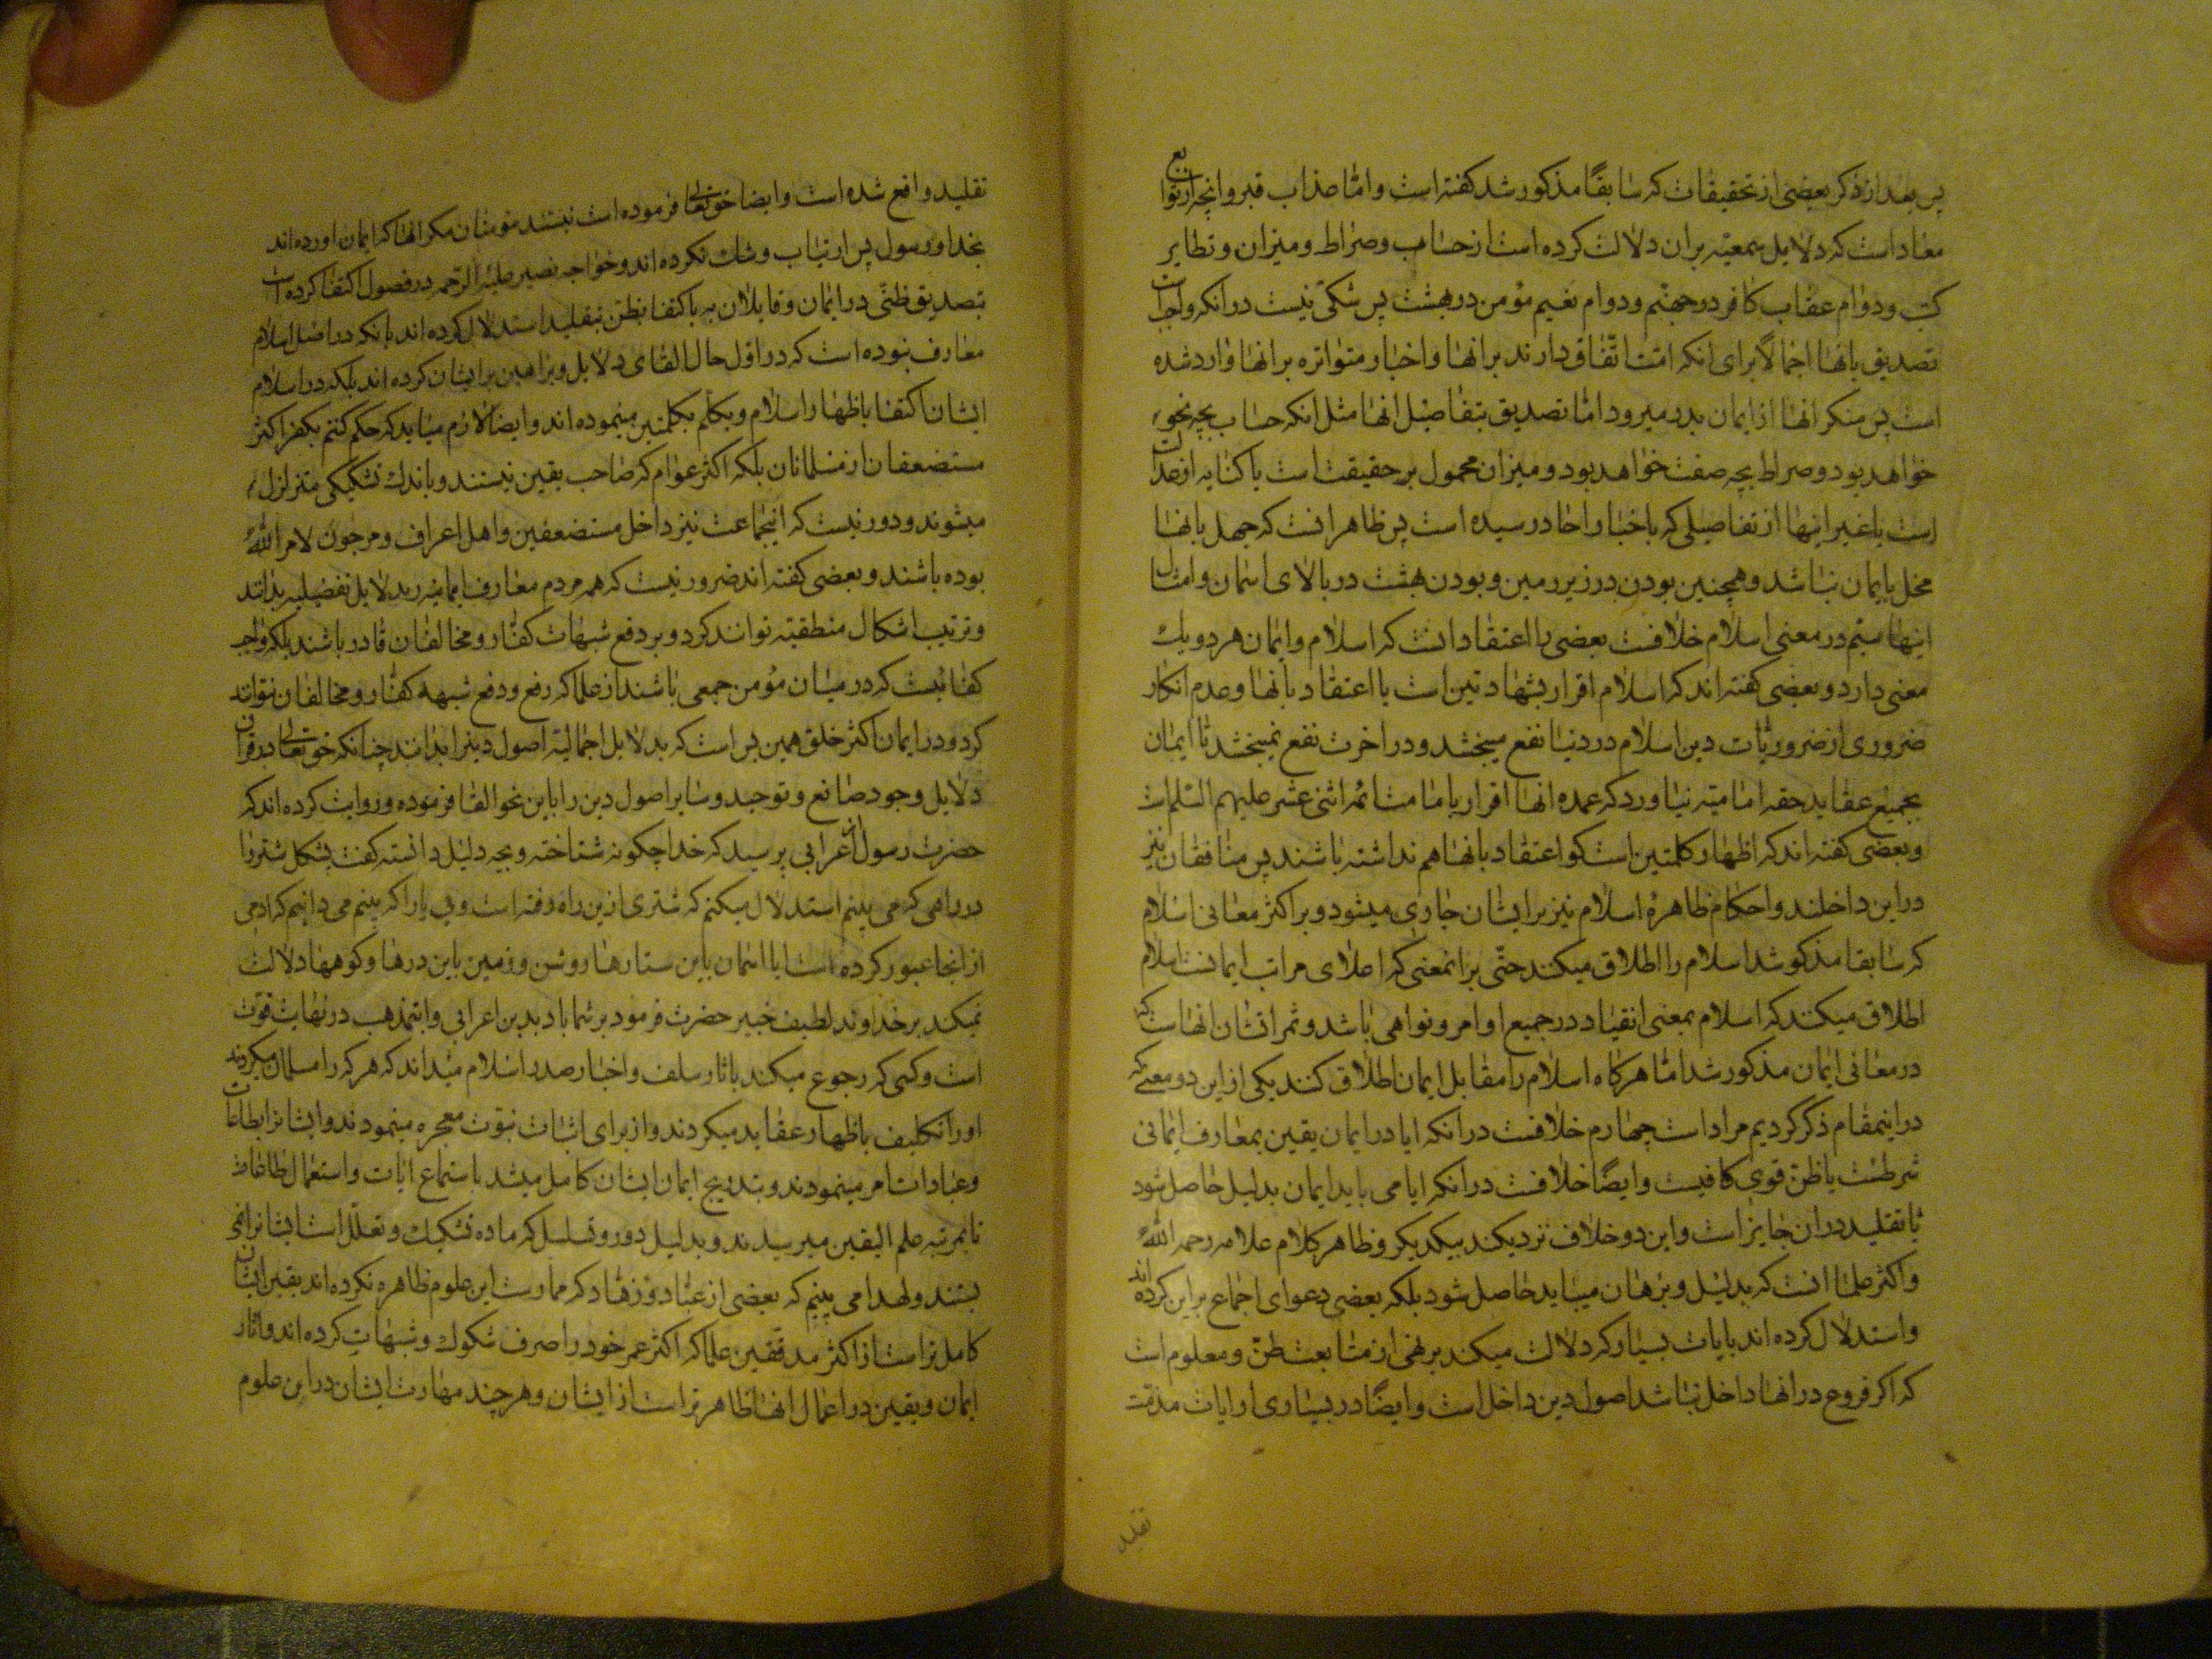 پس بعد از ذکر بعضی از تحقیقات که سابقًا مذکور شد کفته است و امّا عذاب قبر و انچه از توابع
معاد است که دلایل سمعیّه بران دلالت کرده است از حساب و صراط و میزان و تطایر
کتب و دوام عقاب کافر در جهنّم و دوام نعیم مؤمن در بهشت پس شکّی نیست در انکه واجب است
تصدیق بانها اجمالاً برای انکه امّت اتّفاق دارند بر انها و اخبار متواتره بر انها وارد شده
است پس منکر انها از ایمان بدر میرود امّا تصدیق بتفاصیل انها مثل انکه حساب بچه نحو
خواهد بود و صراط بچه صفت خواهد بود و میزان محمول بر حقیقت است یا کنایه از عدالت
است یا غیر اینها از تفاصیلی که باخبار احاد رسیده است پس ظاهر انست که جهل بانها
مخل بایمان نباشد و همچنین بودن در زیر زمین و بودن بهشت در بالای اسمان و امثال
اینها سیّم در معنی اسلام خلافست بعضی را اعتقاد انست که اسلام و ایمان هر دو یک
معنی دارد و بعضی کفته اند که اسلام اقرار بشهادتین است با اعتقاد بانها و عدم انکار
ضروری از ضروریّات دین اسلام در دنیا نفع میبخشد و در اخرت نفع نمیبخشد تا ایمان
بجمیع عقاید حقه امامیّه نیاورد که عمده انها اقرار بامامت ائمه اثنی عشر علیهم السّلم است
و بعضی کفته اند که اظهار کلمتین است کو اعتقاد بانها هم نداشته باشند پس منافقان نیز
در این داخلند و احکام ظاهرهٔ اسلام نیز بر ایشان جاری میشود و بر اکثر معانی اسلام
که سابقا مذکو شد اسلام را اطلاق میکند حتّی بر انمعنی که اعلای مراتب ایمانست اسلام
اطلاق میکند که اسلام بمعنی انقیاد در جمیع اوامر و نواهی باشد و ثمراتشان انهاست که
در معانی ایمان مذکور شد امّا هر کاه اسلام را مقابل ایمان اطلاق کنند یکی از این دو معنی که
در اینمقام ذکر کردیم مراد است چهارم خلافست در انکه ایا در ایمان یقین بمعارف ایمانی
شرطست یا ظنّ قوی کافیست و ایضًا خلافست در انکه ایا می باید ایمان بدلیل حاصل شود
تا تقلید در ان جایز است و این دو خلاف نزدیکند بیکدیکر و ظاهر کلام علامه رحمه اللّه
و اکثر علما انست که بدلیل و برهان میباید حاصل شود بلکه بعضی دعوای اجماع بر این کرده اند
و استدلال کرده اند بایات بسیار که دلالت میکند بر نهی از متابعت ظنّ و معلوم است
که اکر فروع در انها داخل نباشد اصول دین داخل است و ایضًا در بسیاری از ایات مذمّت
تقلید
تقلید واقع شده است و ایضا حقتعالی فرموده است نیستند مؤمنان مکر انها که ایمان اورده اند
بخدا و رسول پس ارتیاب و شک نکرده اند و خواجه نصیر علیه الرّحمه در فصول اکتفا کرده است
بتصدیق ظنّی در ایمان و قایلان به باکتفا بظنّ بتقلید استدلال کرده اند بانکه در اصل اسلام
معارف نبوده است که در اوّل حال القای دلایل و براهین بر ایشان کرده اند بلکه در اسلام
ایشان اکتفا باظهار اسلام و تکلّم بکلمتین مینموده اند و ایضا لازم میاید که حکم کنیم بکفر اکثر
مستضعفان از مسلمانان بلکه اکثر عوام که صاحب یقین نیستند و باندک تشکیکی متزلزل
میشوند و دور نیست که اینجماعت نیز داخل مستضعفین و اهل اعراف و مرجون لامر اللّه
بوده باشند و بعضی کفته اند ضرور نیست که همه مردم معارف ایمانیه را بدلایل تفضیلیه بدانند
و ترتیب اشکال منطقیّه توانند کرد و بر دفع شبهات کفّار و مخالفان قادر باشند بلکه واجب
کفائیست که در میان مؤمن جمعی باشند از علما که رفع و دفع شبهه کفّار و مخالفان توانند
کرد و در ایمان اکثر خلق همین بس است که بدلایل اجمالیّه اصول دین را بدانند چنانکه حقتعالی در قران
دلایل وجود صانع و توحید و سایر اصول دین را باین نحو القا فرموده و روایت کرده اند که
حضرت رسول از اعرابی پرسید که خدا چکونه شناخته و بچه دلیل دانسته کفت پشکل شتر را
در راهی که می بینم استدلال میکنم که شتری از این راه رفته است و پی پا را که بینم می دانیم که ادمی
از انجا عبور کرده است ایا اسمان باین ستارها روشن و زمین باین درها و کوهها دلالت
نمیکند بر خداوند لطیف خبیر حضرت فرمود بر شما باد بدین اعرابی و اینمذهب در نهایت قوّت
است و کسی که رجوع میکند باثار سلف و اخبار صدر اسلام میداند که هر که را مسلمان میکردند
او را تکلیف باظهار عقاید میکردند و از برای اثبات نبوّت معجزه مینمودند و ایشانرا بطاعات
و عبادات امر مینمودند و بتدریج ایمان ایشان کامل میشد باستماع ایات و استعمال طاعات
تا بمرتبه علم الیقین میرسیدند و بدلیل دور و تسلسل که ماده تشکیک و تعلّل است ایشانرا نمی
بستند و لهذا می بینیم که بعضی از عبّاد و زهّاد که ممارست این علوم ظاهره نکرده اند یقین ایشان
کاملتر است از اکثر مدقّقین علما که اکثر عمر خود را صرف شکوک و شبهات کرده اند و اثار
ایمان و یقین در اعمال انها ظاهرتر است از ایشان و هر چند مهارت ایشان در این علوم